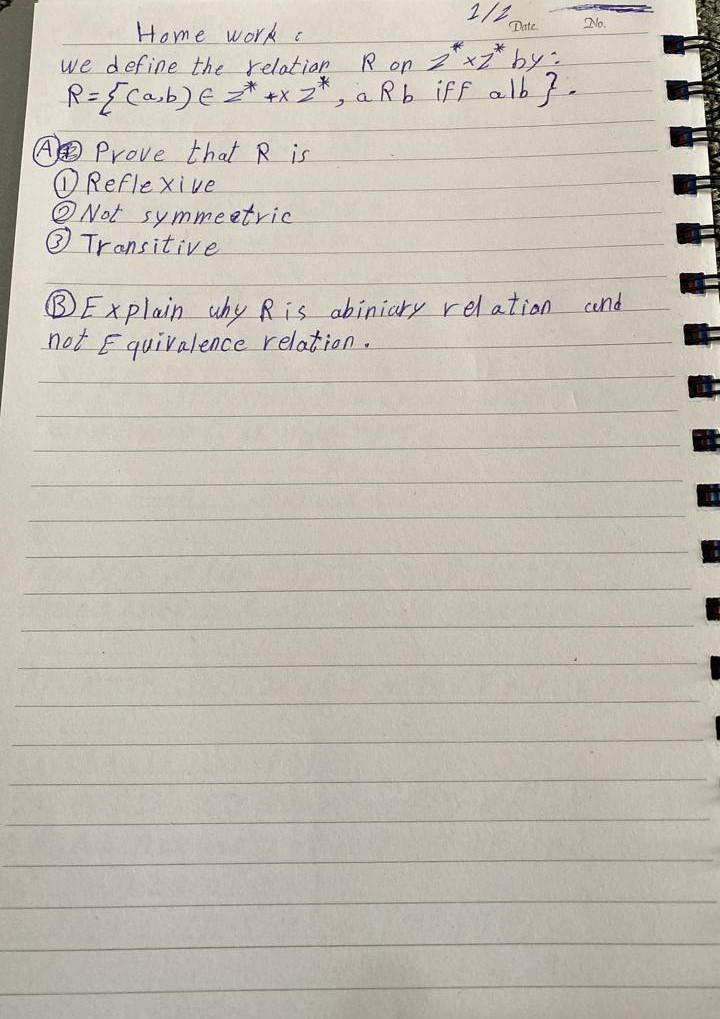 1/2 Date. No.
Home work:
we define the relation R on Z* x Z* by:
R = {(a,b) ∈ Z* x Z*, a R b iff a|b}.
(A) Prove that R is
① Reflexive
② Not symmeetric
③ Transitive
(B) Explain why R is abiniary relation and
not Equivalence relation.